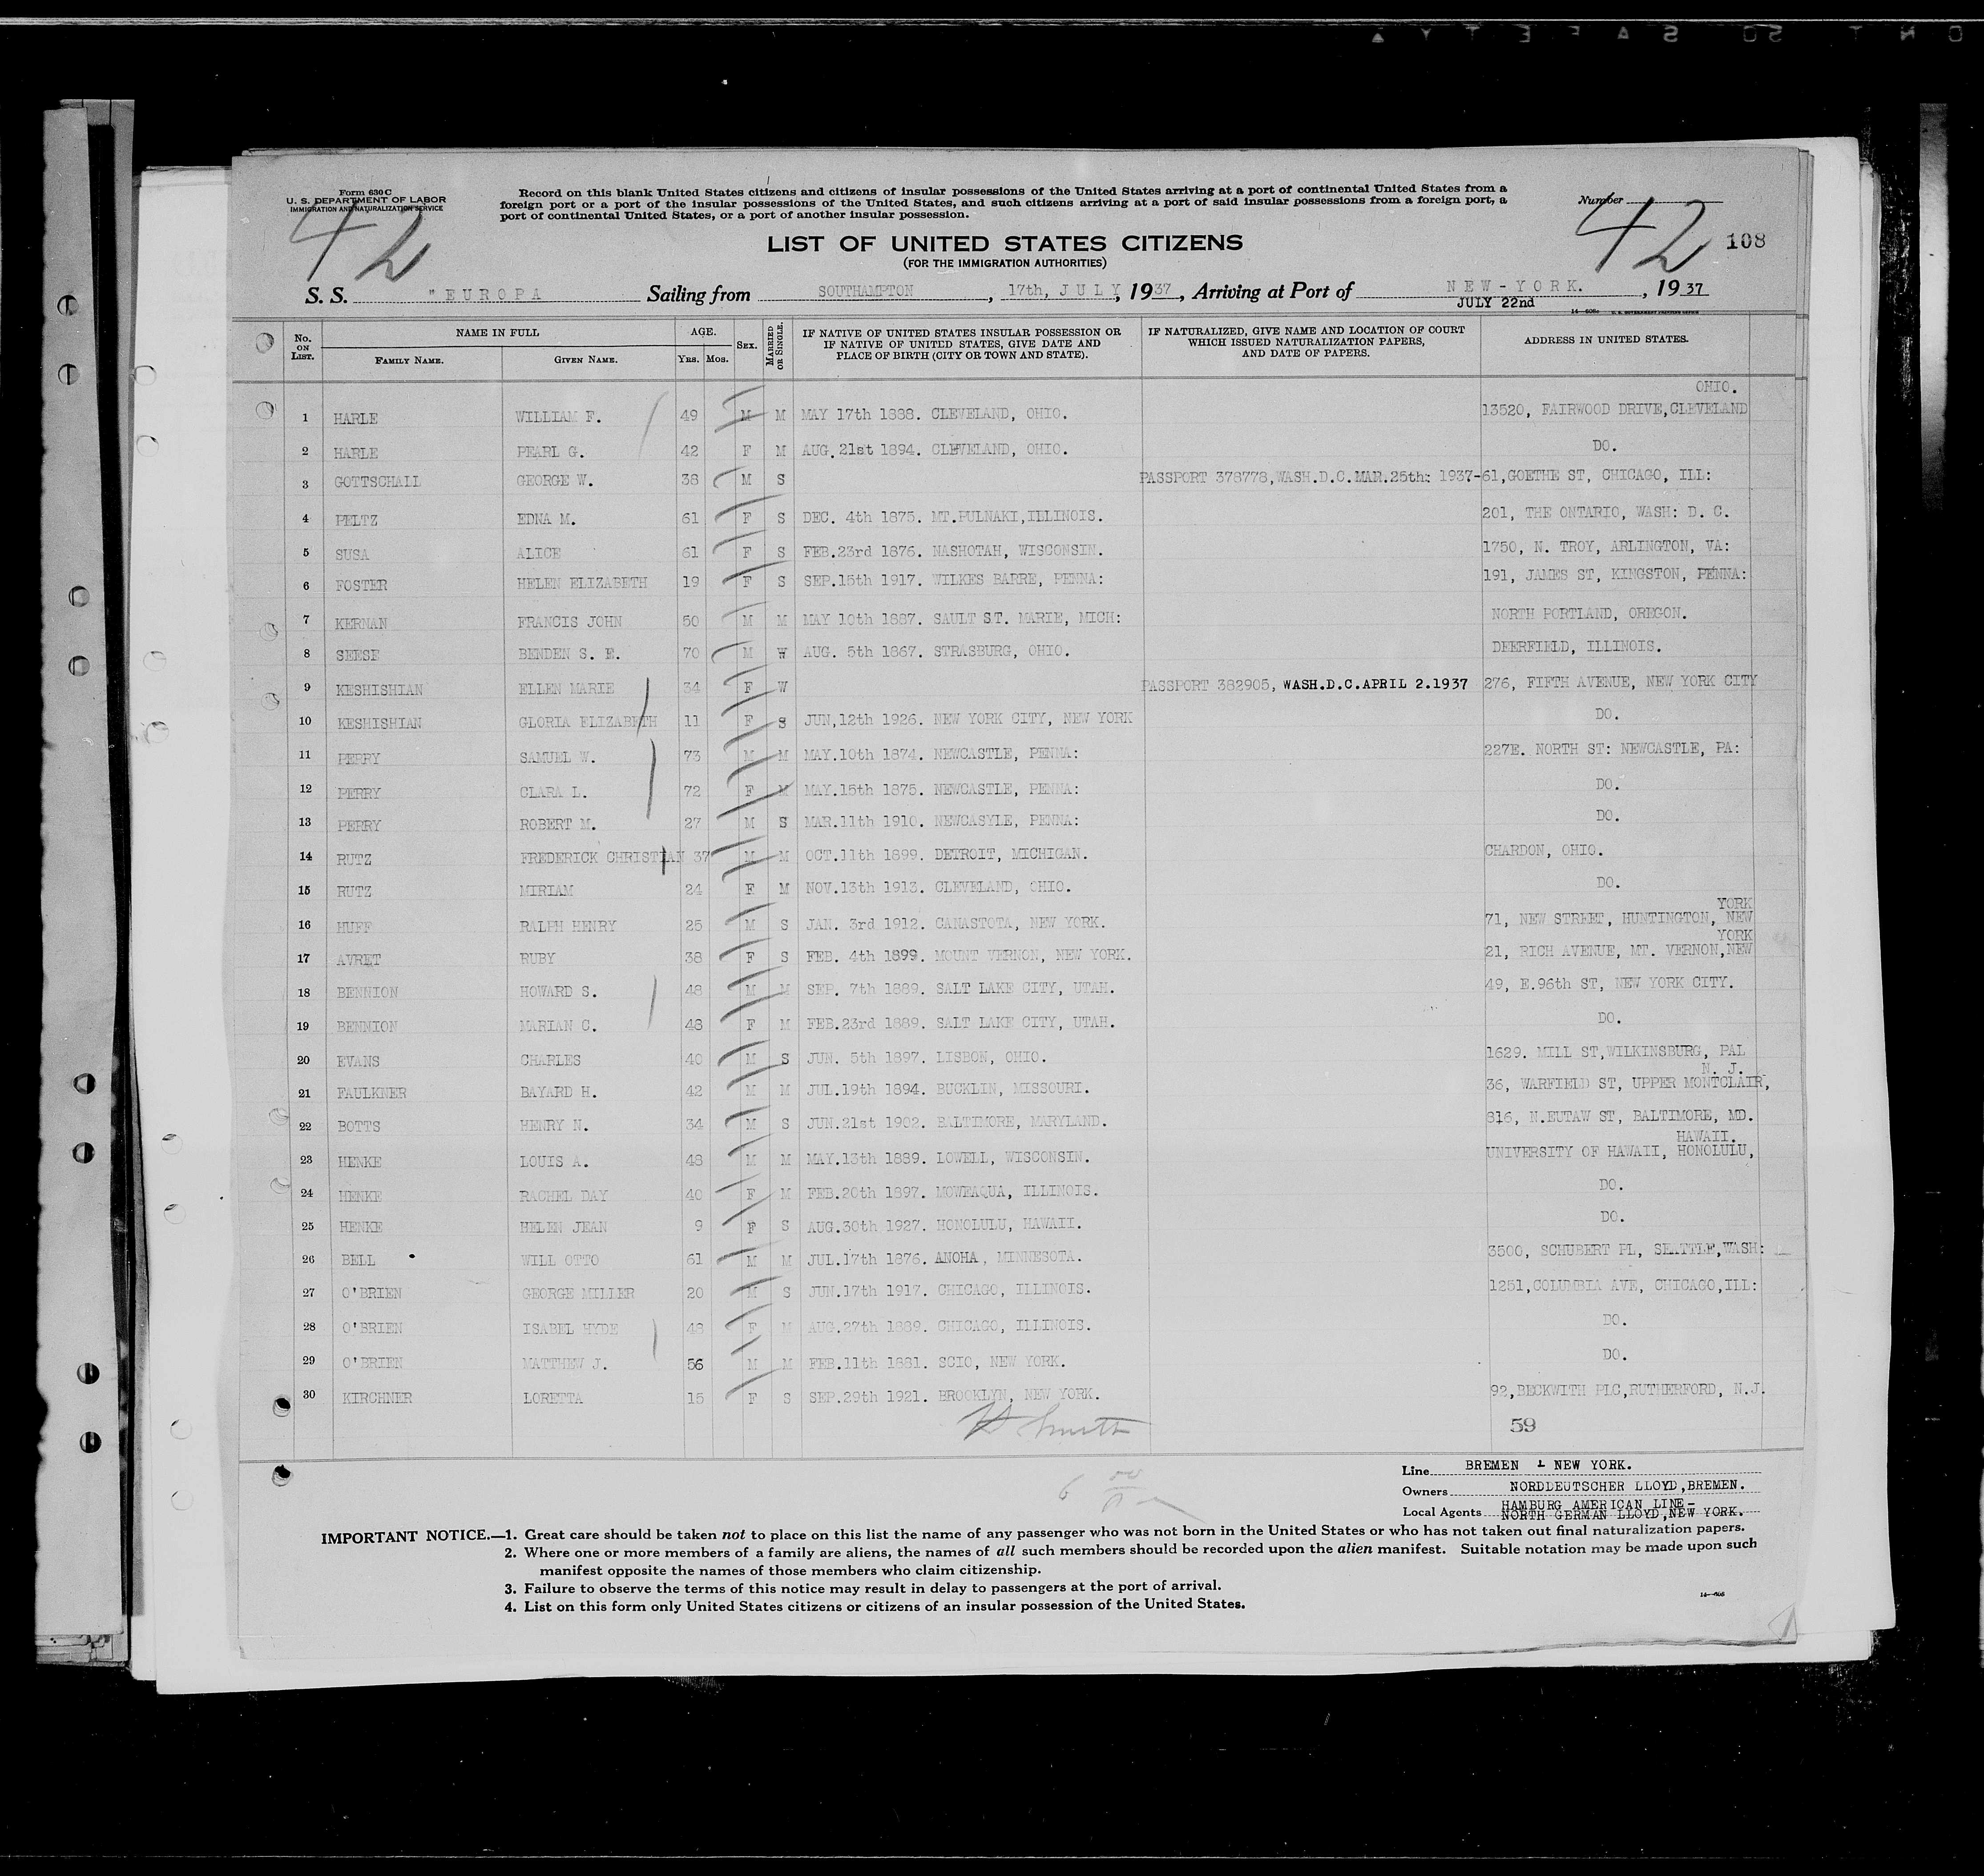 Form 630 C
U. S. DEPARTMENT OF LABOR
IMMIGRATION AND NATURALIZATION SERVICE
Record on this blank United States citizens and citizens of insular possessions of the United States arriving at a port of continental United States from a
foreign port or a port of the insular possessions of the United States, and such citizens arriving at a port of said insular possessions from a foreign port, a
port of continental United States, or a port of another insular possession.
Number
42
42
108
LIST OF UNITED STATES CITIZENS
(FOR THE IMMIGRATION AUTHORITIES)
S. S. "EUROPA Sailing from SOUTHAMPTON, 17th, JULY, 1937, Arriving at Port of NEW-YORK., 1937
JULY 22nd
No. ON LIST. NAME IN FULL FAMILY NAME. GIVEN NAME. AGE. YRS. MOS. SEX. MARRIED OR SINGLE. IF NATIVE OF UNITED STATES INSULAR POSSESSION OR IF NATIVE OF UNITED STATES, GIVE DATE AND PLACE OF BIRTH (CITY OR TOWN AND STATE). IF NATURALIZED, GIVE NAME AND LOCATION OF COURT WHICH ISSUED NATURALIZATION PAPERS, AND DATE OF PAPERS. ADDRESS IN UNITED STATES.
OHIO.
1 HARLE WILLIAM F. 49 M M MAY 17th 1888. CLEVELAND, OHIO. 13520, FAIRWOOD DRIVE,CLEVELAND
2 HARLE PEARL G. 42 F M AUG. 21st 1894. CLEVELAND, OHIO. DO.
3 GOTTSCHALL GEORGE W. 38 M S PASSPORT 378778,WASH.D.C.MAR.25th: 1937- 61,GOETHE ST, CHICAGO, ILL:
4 PELTZ EDNA M. 61 F S DEC. 4th 1875. MT.PULNAKI,ILLINOIS. 201, THE ONTARIO, WASH: D. C.
5 SUSA ALICE 61 F S FEB.23rd 1876. NASHOTAH, WISCONSIN. 1750, N. TROY, ARLINGTON, VA:
6 FOSTER HELEN ELIZABETH 19 F S SEP.15th 1917. WILKES BARRE, PENNA: 191, JAMES ST, KINGSTON, PENNA:
7 KERNAN FRANCIS JOHN 50 M M MAY 10th 1887. SAULT ST. MARIE, MICH: NORTH PORTLAND, OREGON.
8 SEESE BENDEN S. E. 70 M W AUG. 5th 1867. STRASBURG, OHIO. DEERFIELD, ILLINOIS.
9 KESHISHIAN ELLEN MARIE 34 F W PASSPORT 382905, WASH.D.C.APRIL 2.1937 276, FIFTH AVENUE, NEW YORK CITY
10 KESHISHIAN GLORIA ELIZABETH 11 F S JUN,12th 1926. NEW YORK CITY, NEW YORK DO.
11 PERRY SAMUEL W. 73 M M MAY.10th 1874. NEWCASTLE, PENNA: 227E. NORTH ST: NEWCASTLE, PA:
12 PERRY CLARA L. 72 F M MAY.15th 1875. NEWCASTLE, PENNA: DO.
13 PERRY ROBERT M. 27 M S MAR.11th 1910. NEWCASYLE, PENNA: DO.
14 RUTZ FREDERICK CHRISTIAN 37 M M OCT.11th 1899. DETROIT, MICHIGAN. CHARDON, OHIO.
15 RUTZ MIRIAM 24 F M NOV.13th 1913. CLEVELAND, OHIO. DO.
YORK
16 HUFF RALPH HENRY 25 M S JAN. 3rd 1912. CANASTOTA, NEW YORK. 71, NEW STREET, HUNTINGTON, NEW
YORK
17 AVRET RUBY 38 F S FEB. 4th 1899. MOUNT VERNON, NEW YORK. 21, RICH AVENUE, MT. VERNON,NEW
18 BENNION HOWARD S. 48 M M SEP. 7th 1889. SALT LAKE CITY, UTAH. 49, E.96th ST, NEW YORK CITY.
19 BENNION MARIAN C. 48 F M FEB.23rd 1889. SALT LAKE CITY, UTAH. DO.
20 EVANS CHARLES 40 M S JUN. 5th 1897. LISBON, OHIO. 1629. MILL ST,WILKINSBURG, PAL
N. J.
21 FAULKNER BAYARD H. 42 M M JUL.19th 1894. BUCKLIN, MISSOURI. 36, WARFIELD ST, UPPER MONTCLAIR,
22 BOTTS HENRY N. 34 M S JUN.21st 1902. BALTIMORE, MARYLAND. 816, N.EUTAW ST, BALTIMORE, MD.
HAWAII.
23 HENKE LOUIS A. 48 M M MAY.13th 1889. LOWELL, WISCONSIN. UNIVERSITY OF HAWAII, HONOLULU,
24 HENKE RACHEL DAY 40 F M FEB.20th 1897. MOWEAQUA, ILLINOIS. DO.
25 HENKE HELEN JEAN 9 F S AUG.30th 1927. HONOLULU, HAWAII. DO.
26 BELL WILL OTTO 61 M M JUL.17th 1876. ANOHA, MINNESOTA. 3500, SCHUBERT PL, SEATTLE,WASH:
27 O'BRIEN GEORGE MILLER 20 M S JUN.17th 1917. CHICAGO, ILLINOIS. 1251,COLUMBIA AVE, CHICAGO,ILL:
28 O'BRIEN ISABEL HYDE 48 F M AUG.27th 1889. CHICAGO, ILLINOIS. DO.
29 O'BRIEN MATTHEW J. 56 M M FEB.11th 1881. SCIO, NEW YORK. DO.
30 KIRCHNER LORETTA 15 F S SEP.29th 1921. BROOKLYN, NEW YORK. 92,BECKWITH PLC,RUTHERFORD, N.J.
Smith
59
Line BREMEN - NEW YORK.
Owners NORDDEUTSCHER LLOYD,BREMEN.
Local Agents HAMBURG AMERICAN LINE-
NORTH GERMAN LLOYD,NEW YORK.
IMPORTANT NOTICE.—1. Great care should be taken not to place on this list the name of any passenger who was not born in the United States or who has not taken out final naturalization papers.
2. Where one or more members of a family are aliens, the names of all such members should be recorded upon the alien manifest. Suitable notation may be made upon such
manifest opposite the names of those members who claim citizenship.
3. Failure to observe the terms of this notice may result in delay to passengers at the port of arrival.
4. List on this form only United States citizens or citizens of an insular possession of the United States.